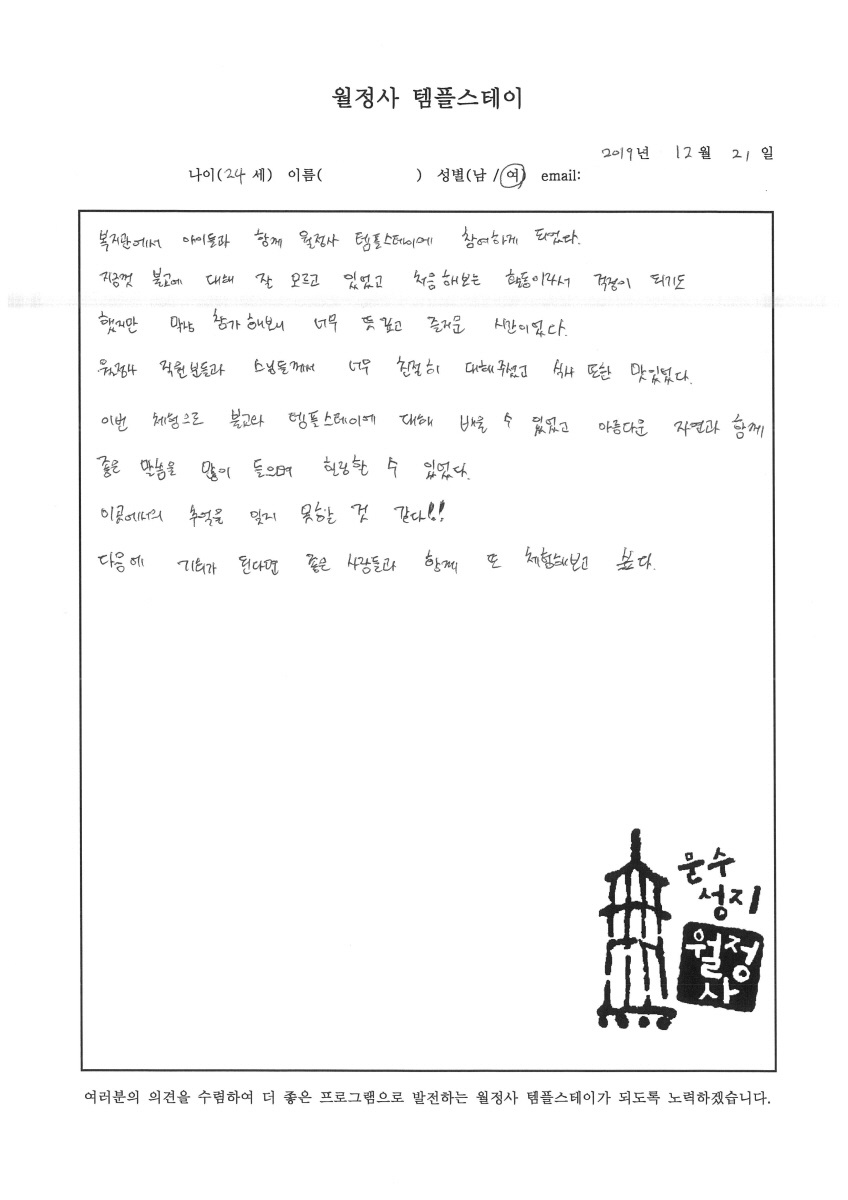 월정사 템플스테이
2019년 12월 21일
나이(24세) 이름( ) 성별(남/여) email:
복지관에서 아이들과 함께 월정사 템플스테이에 참여하게 되었다.
지금껏 불교에 대해 잘 모르고 있었고 처음 해보는 활동이라서 걱정이 되기도
했지만 막상 참가해보니 너무 뜻깊고 즐거운 시간이었다.
월정사 직원분들과 스님들께서 너무 친절히 대해주셨고 식사 또한 맛있었다.
이번 체험으로 불교와 템플스테이에 대해 배울 수 있었고 아름다운 자연과 함께
좋은 말씀을 많이 들으며 힐링할 수 있었다.
이곳에서의 추억을 잊지 못할 것 같다!!
다음에 기회가 된다면 좋은 사람들과 함께 또 체험해보고 싶다.
문수
성지
월정
사
여러분의 의견을 수렴하여 더 좋은 프로그램으로 발전하는 월정사 템플스테이가 되도록 노력하겠습니다.